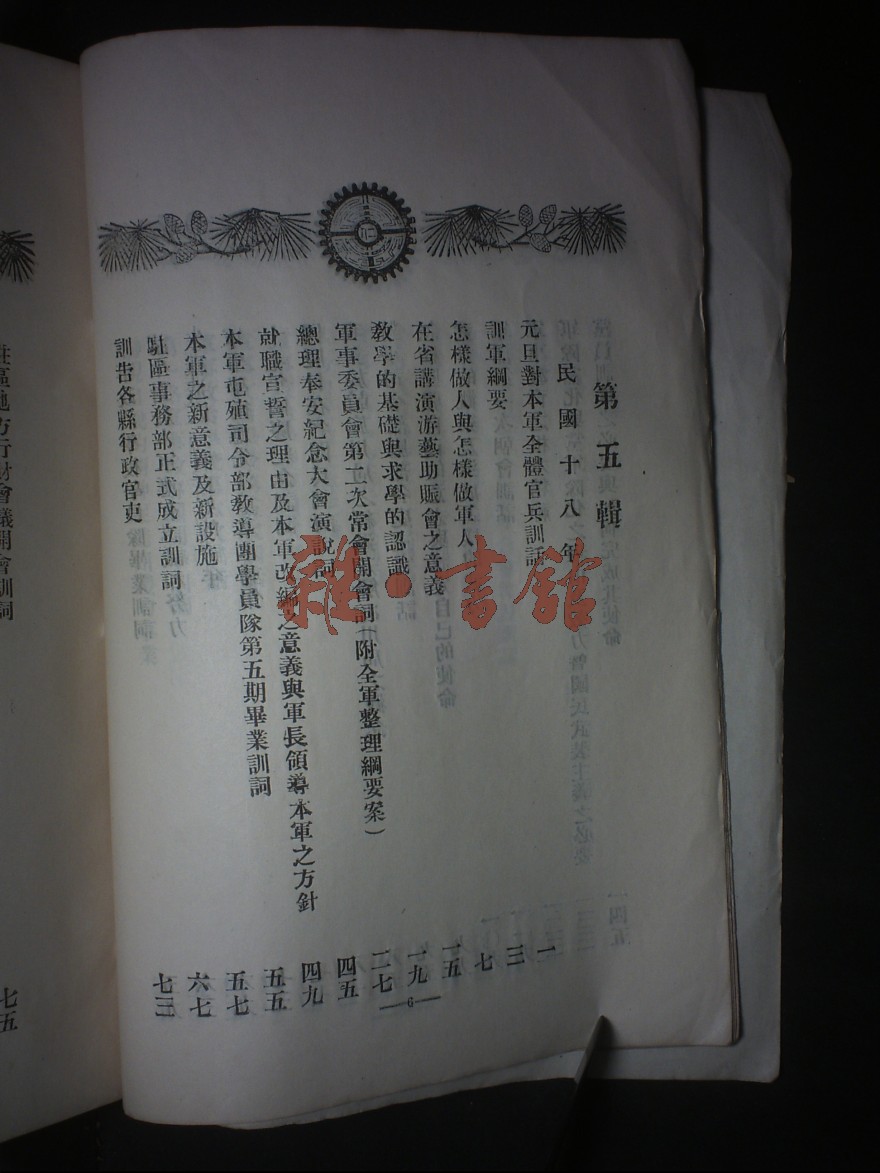 第五輯
民國十八年
元旦對本軍全體官兵訓話 一
訓軍綱要 三
怎樣做人與怎樣做軍人 七
在省講演游藝助賑會之意義 一五
教學的基礎與求學的認識 一九
軍事委員會第二次常會開會詞(附全軍整理綱要案) 二七
總理奉安紀念大會演說詞 四五
就職宣誓之理由及本軍改編之意義與軍長領導本軍之方針 四九
本軍屯殖司令部教導團學員隊第五期畢業訓詞 五五
本軍之新意義及新設施 五七
駐區事務部正式成立訓詞 六七
訓告各縣行政官吏 七三
—6—
駐區地方行財會議開會訓詞 七五
雜·書館